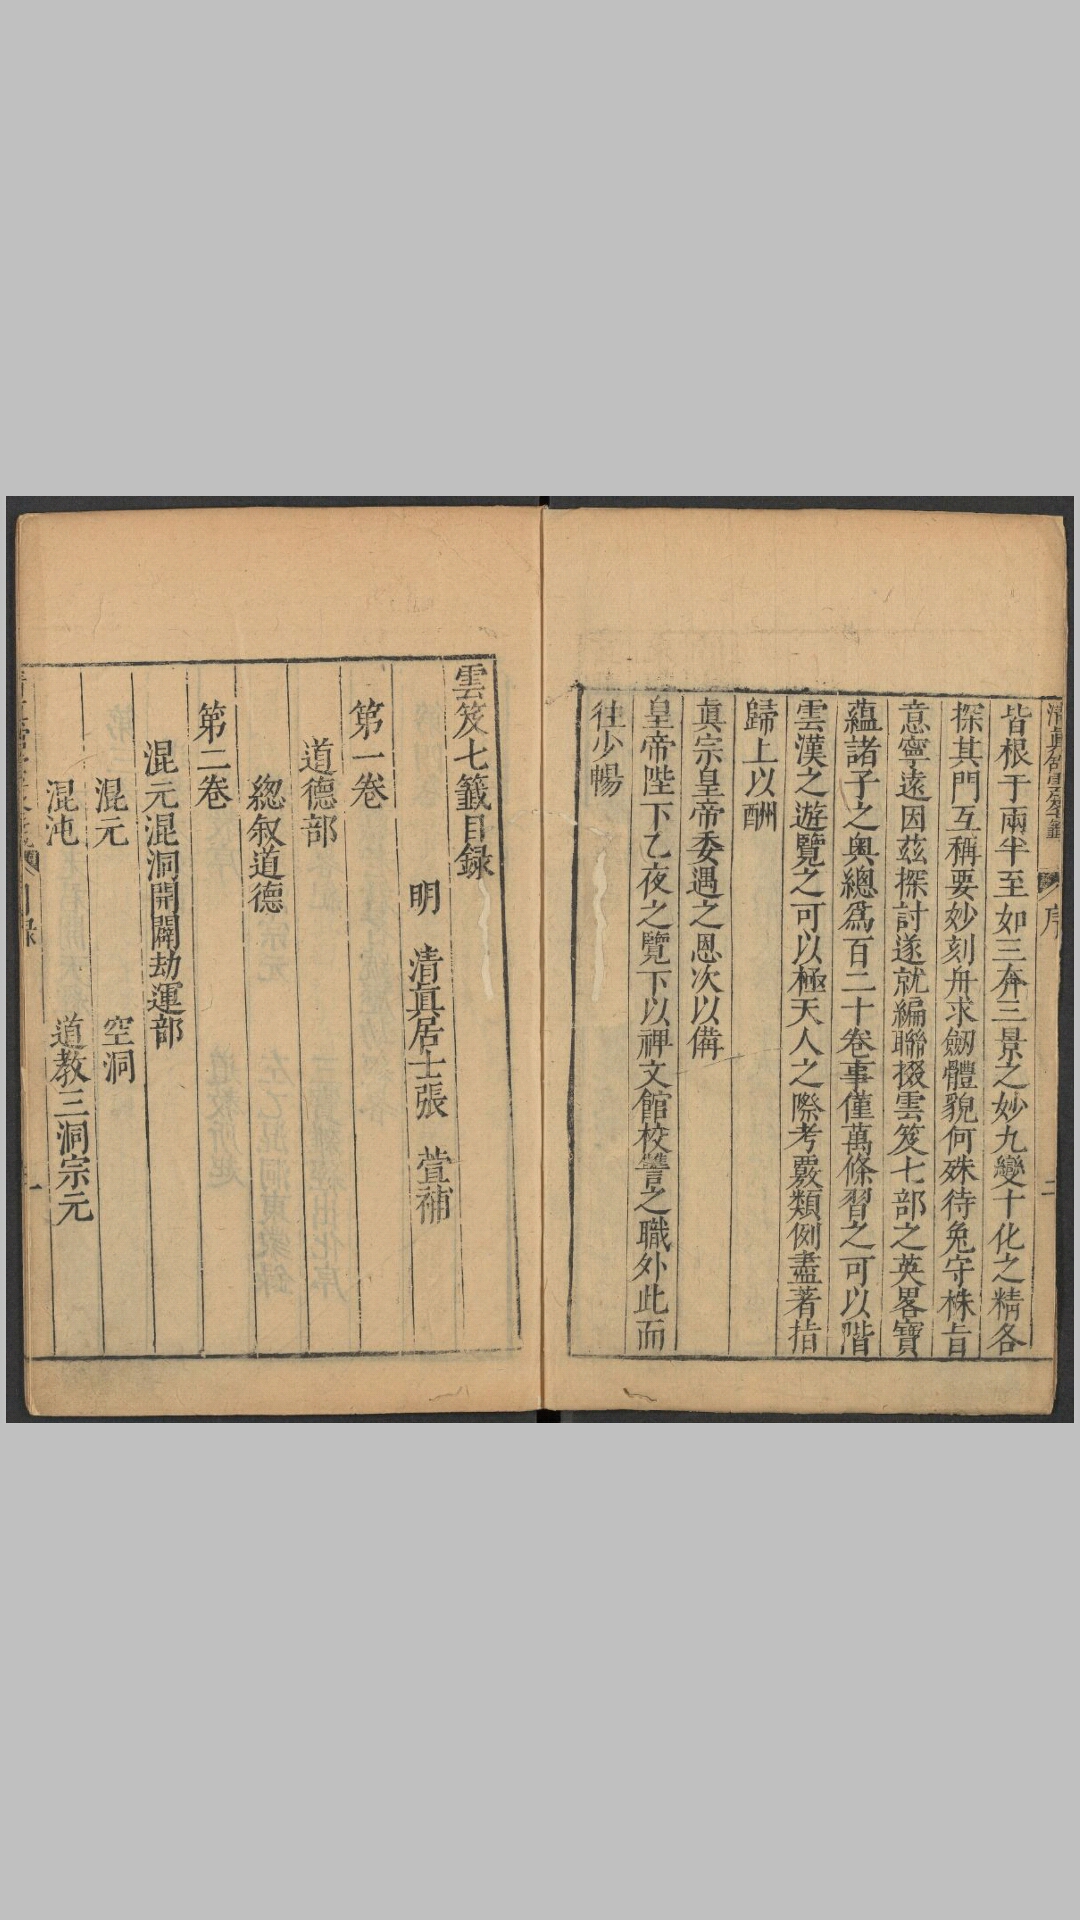 皆根于兩半至如三奔三景之妙九變十化之精各
探其門互稱要妙刻舟求劒體貌何殊待兔守株旨
意寧遠因茲探討遂就編聯掇雲笈七部之英畧寶
蘊諸子之奥總爲百二十卷事僅萬條習之可以階
雲漢之遊覽之可以極天人之際考覈類例盡著指
歸上以酬
眞宗皇帝委遇之恩次以備
皇帝陛下乙夜之覽下以裨文館校讐之職外此而
往少暢
雲笈七籤目録
明 清眞居士張 萱補
第一卷
道德部
總叙道德
第二卷
混元混洞開闢劫運部
混元 空洞
混沌 道教三洞宗元